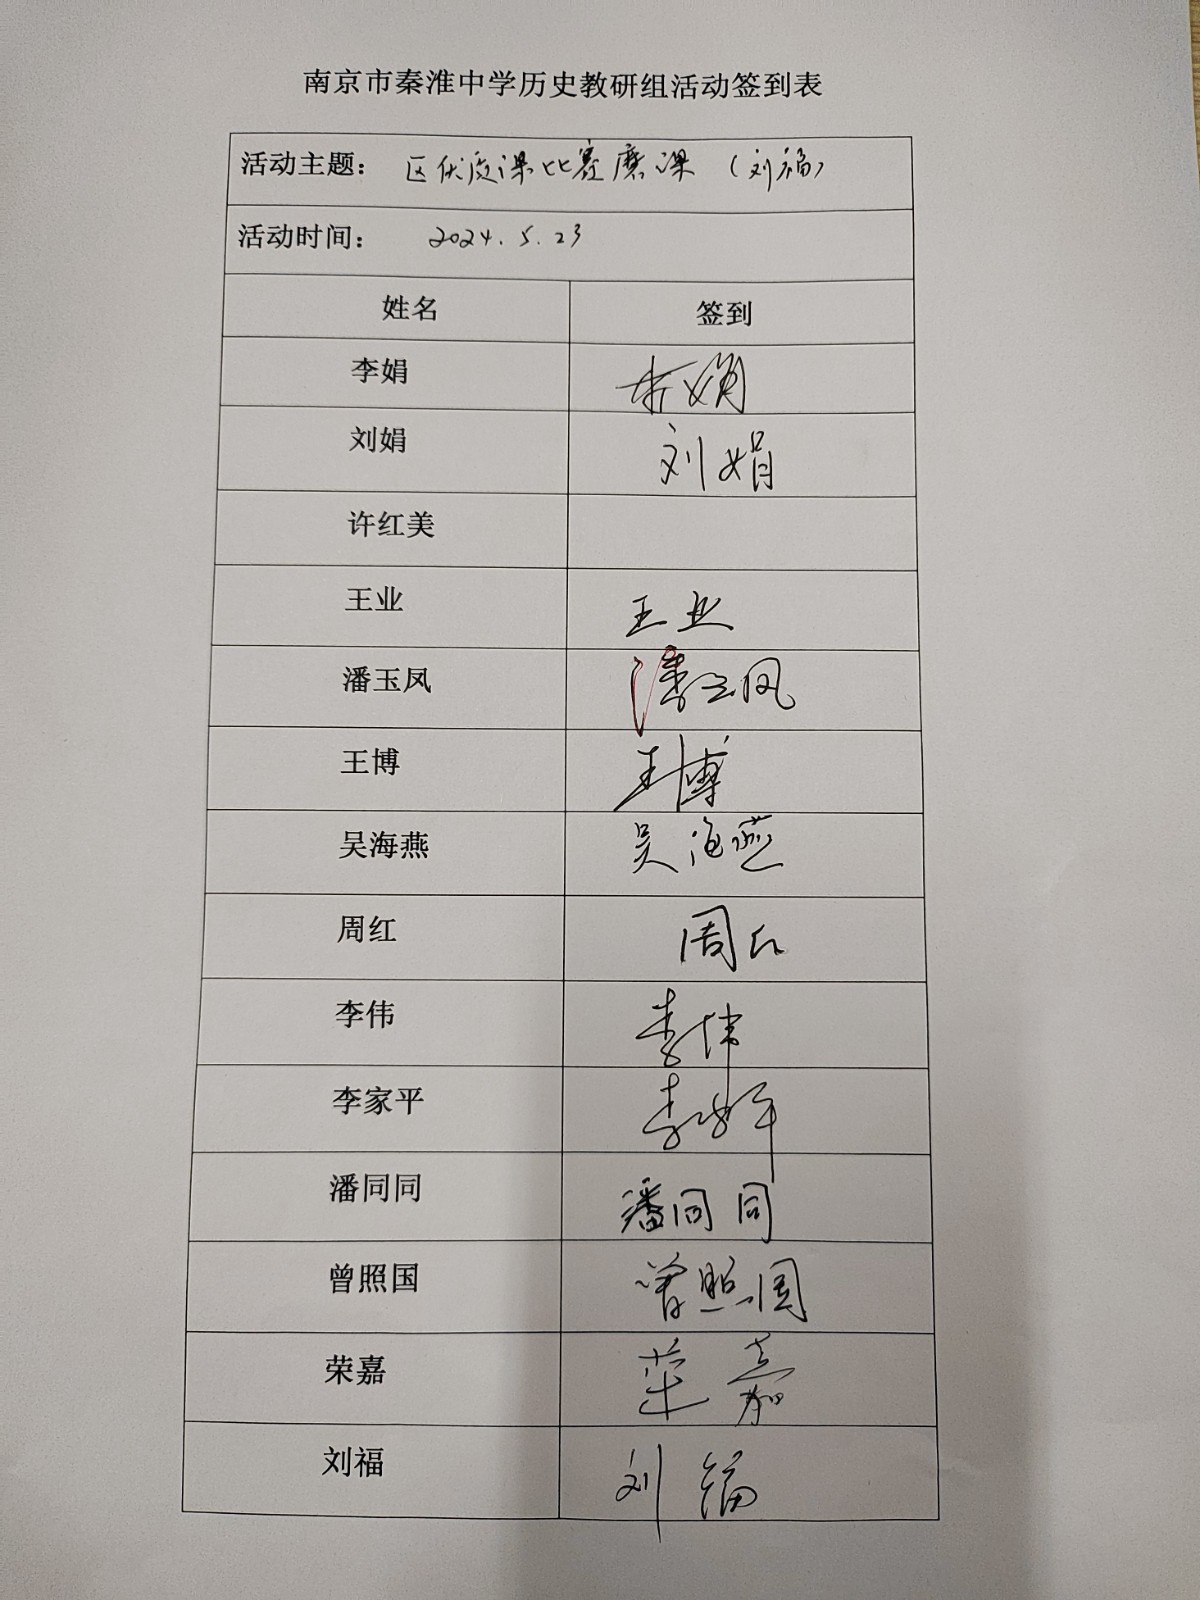 南京市秦淮中学历史教研组活动签到表
活动主题： 区优质课比赛磨课（刘福）
活动时间： 2024.5.23
姓名 签到
李娟 李娟
刘娟 刘娟
许红美
王业 王业
潘玉凤 潘玉凤
王博 王博
吴海燕 吴海燕
周红 周红
李伟 李伟
李家平 李家平
潘同同 潘同同
曾照国 曾照国
荣嘉 荣嘉
刘福 刘福